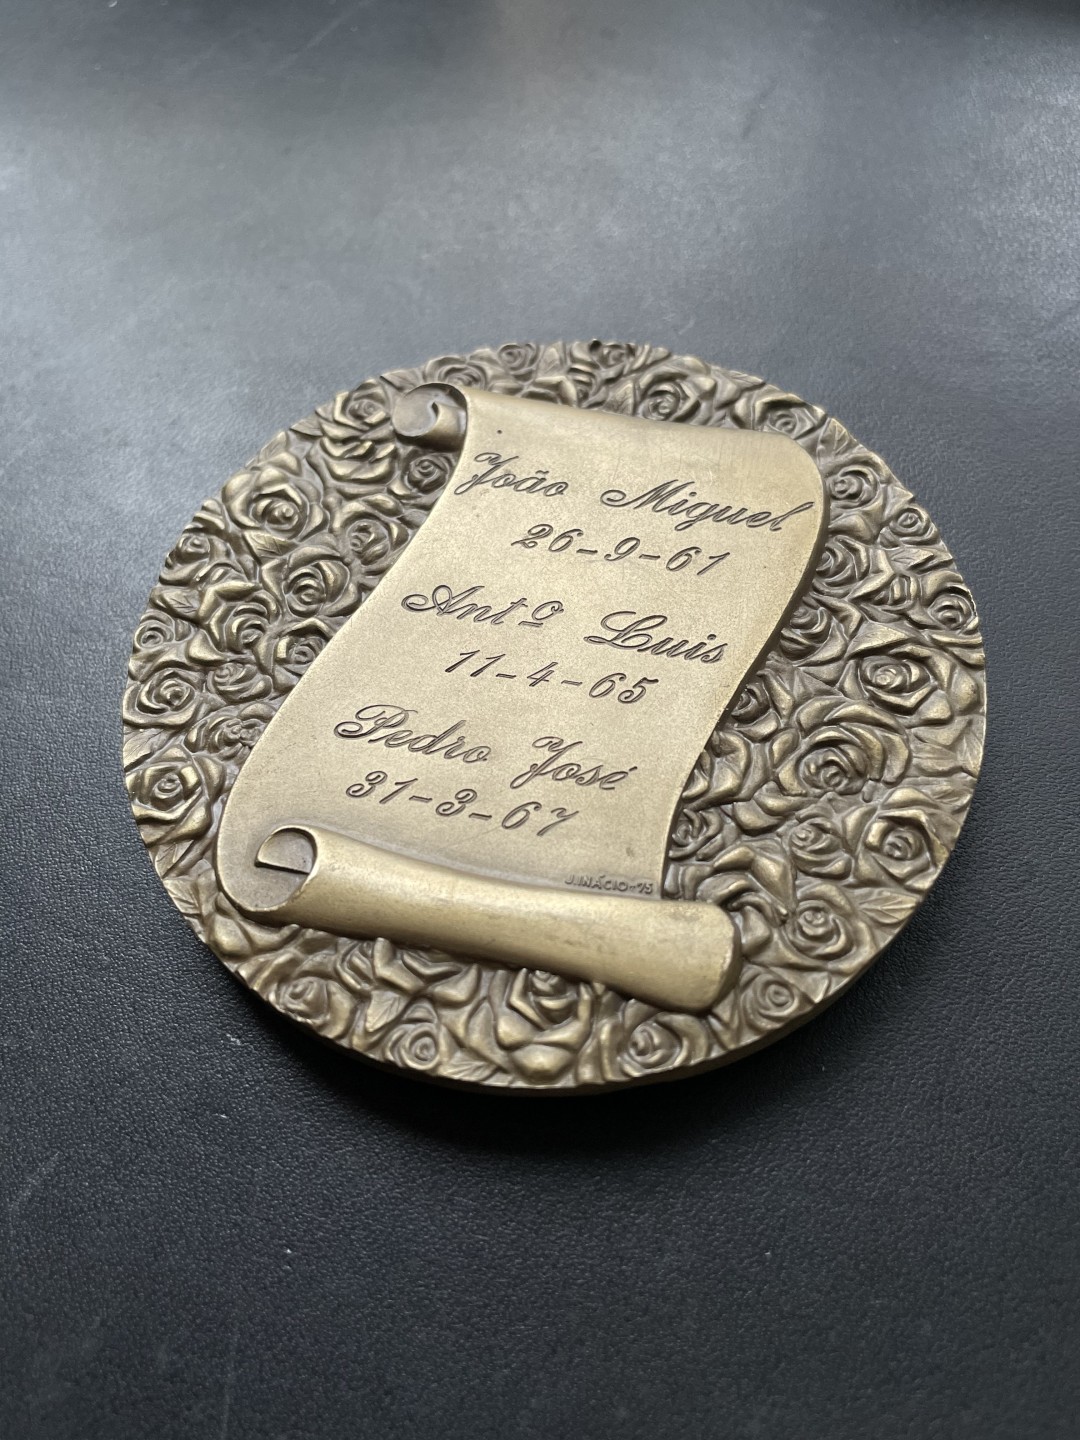 João Miguel
26-9-61
Antº Luis
11-4-65
Pedro José
31-3-67
J.INÁCIO-75